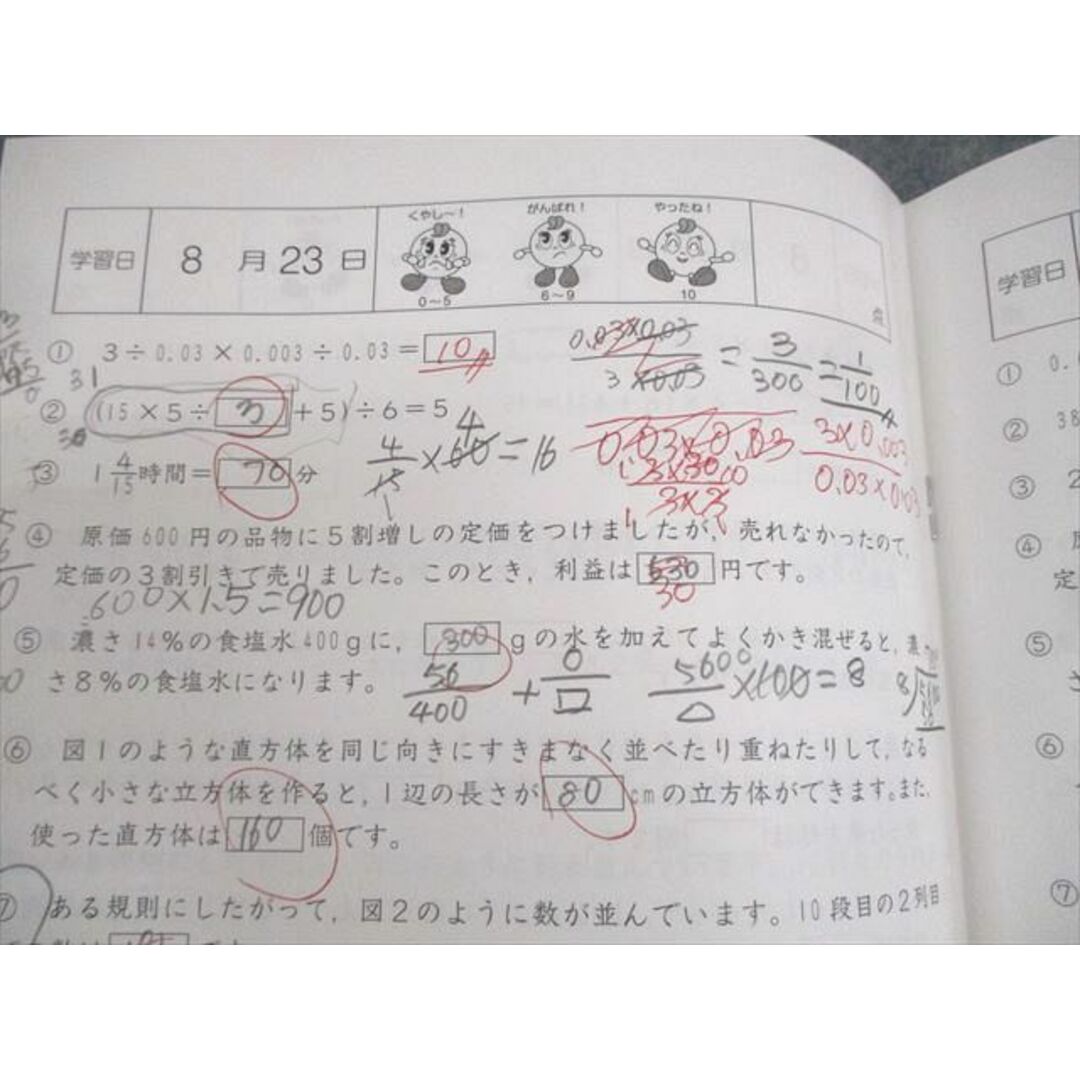 くやし〜! がんばれ! やったね!
学習日 8 月 23 日
0〜5 6〜9 10
点
学習日
① 3÷0.03×0.003÷0.03=10
0.03×0.03
3×0.03
= 3/300 = 1/100
31
② (15×5÷3+5)÷6=5
③ 1 4/15時間=76分
4/15×60=16
4
0.03×0.03
3×30
3×3
3×0.003
0.03×0.03
④ 原価600円の品物に5割増しの定価をつけましたが,売れなかったので,
定価の3割引きで売りました。このとき,利益は630円です。
30
600×1.5=900
⑤ 濃さ14%の食塩水400gに,300gの水を加えてよくかき混ぜると,濃
さ8%の食塩水になります。
56/400 + 0/□
5600/△×100=8
8
⑥ 図1のような直方体を同じ向きにすきまなく並べたり重ねたりして,なる
べく小さな立方体を作ると,1辺の長さが80cmの立方体ができます。また,
使った直方体は160個です。
⑦ ある規則にしたがって,図2のように数が並んでいます。10段目の2列目
① 0.
② 38
③ 2
④
定
⑤
さ
⑥
⑦